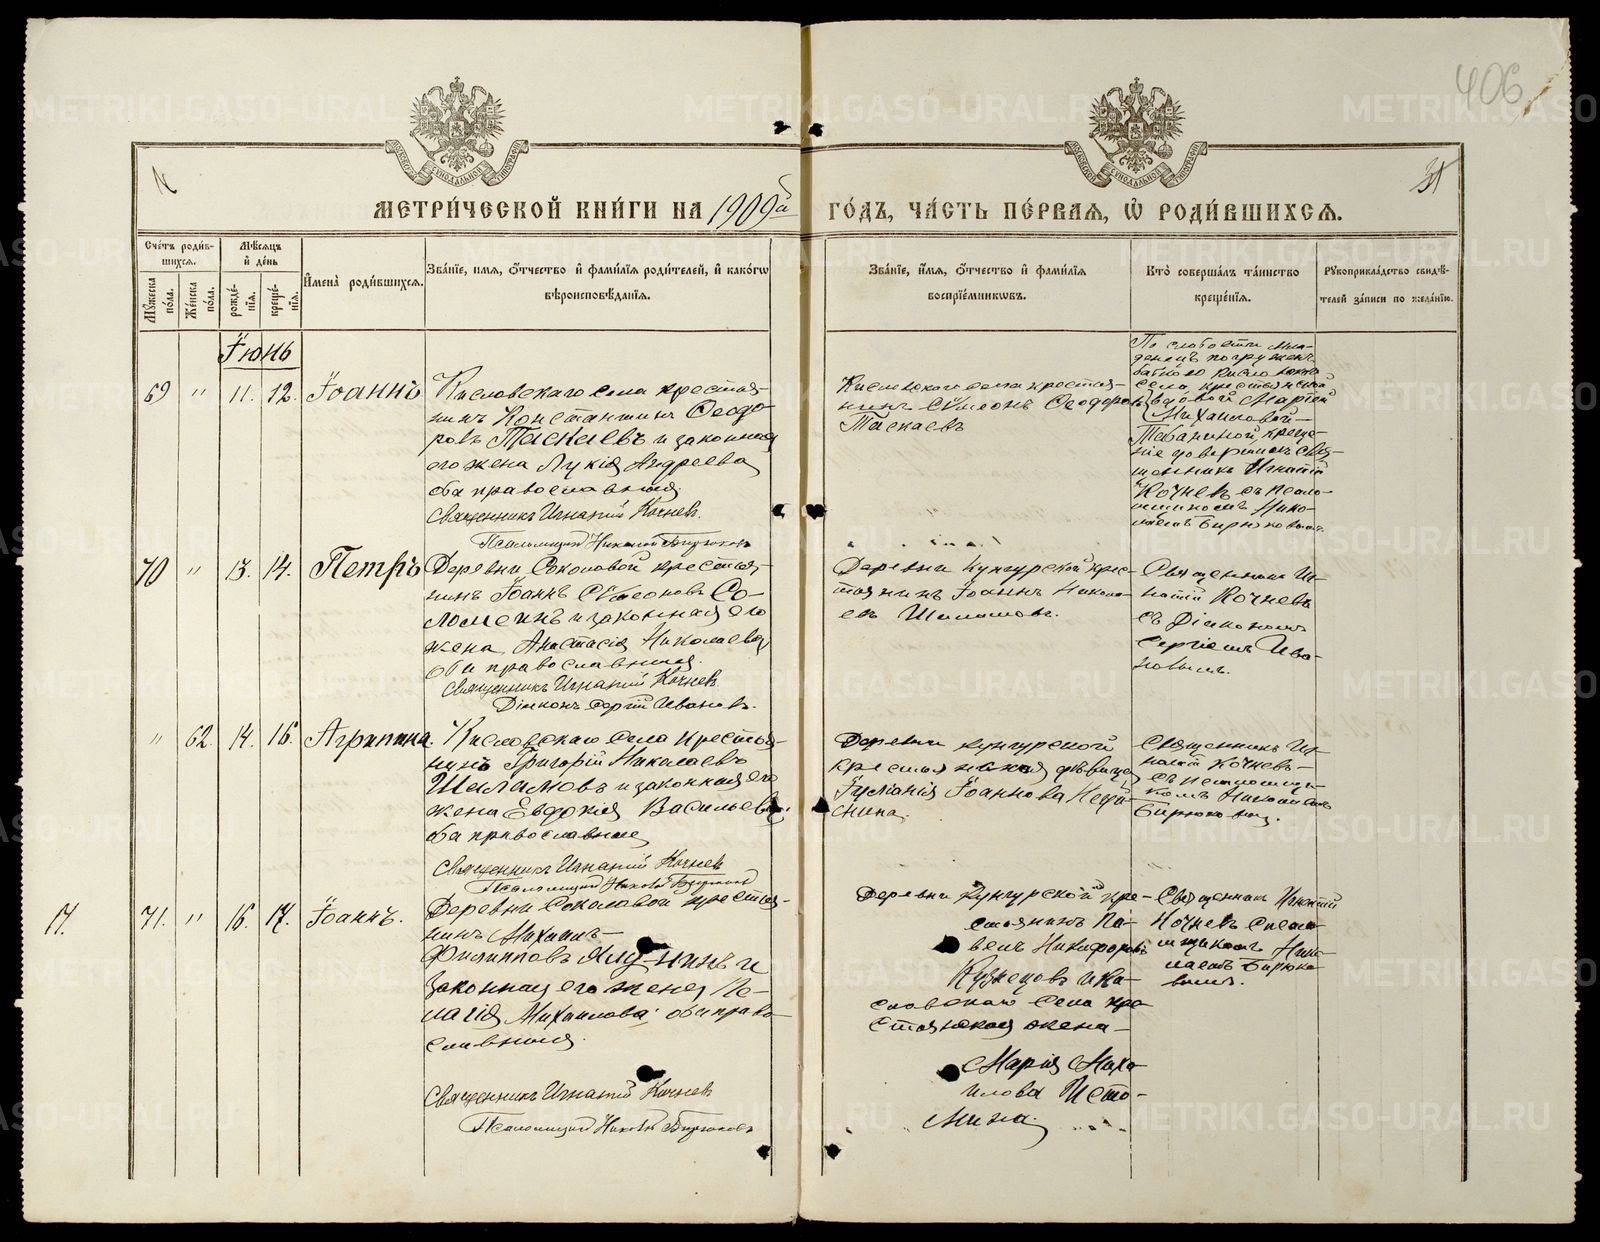 406
31
МЕТРИ́ЧЕСКОЙ КНИ́ГИ НА 1909й ГО́ДЪ, ЧА́СТЬ ПЕ́РВАЯ, Ѡ РОДИ́ВШИХСЯ.
Сче́тъ роди́вшихся.
Му́жеска по́ла.
Же́нска по́ла.
Мѣ́сяцъ и де́нь
рожде́нїя.
креще́нїя.
Имена̀ роди́вшихся.
Зва́нїе, имя, о́тчество и фами́лїя роди́телей, и како́гѡ вѣроисповѣ́данїя.
Зва́нїе, и́мя, о́тчество и фами́лїя воспрїе́мникѡвъ.
Кто̀ соверша́лъ та́инство креще́нїя.
Рукоприкла́дство свидѣ́телей за́писи по жела́нїю.
Їюнь
69 " 11. 12. Їоаннъ
Кисловскаго села крестья-
нинъ Константинъ Ѳеодо-
ровъ Таскаевъ и законная
его жена Лукія Андреева
оба православныя.
Священникъ Игнатій Кочневъ
Псаломщикъ Николай Бирюковъ
Кисловскаго села крестья-
нинъ Сѵмеонъ Ѳеодоровъ
Таскаевъ
По слабости мла-
денецъ погруженъ
села крестьянской
вдовой Маріей
Михаиловой
Табачиной, креще-
ніе довершилъ свя-
щенникъ Игнатій
Кочневъ съ псало-
мщикомъ Нико-
лаемъ Бирюковымъ.
70 " 13. 14. Петръ
Деревни Соколовой крестья-
нинъ Їоаннъ Сѵмеоновъ Со-
ломеинъ и законная его
жена Анастасія Николаева
оба православныя.
Священникъ Игнатій Кочневъ
Діаконъ Сергій Ивановъ.
Деревни Кунгурской крес-
тьянинъ Їоаннъ Никола-
евъ Шаламовъ.
Священникъ Иг-
натій Кочневъ
съ Діакономъ
Сергіемъ Ива-
новымъ.
" 62. 14. 16. Агрипина.
Кисловскаго села крестья-
нинъ Григорій Николаевъ
Шаламовъ и законная его
жена Евдокія Васильева
оба православные
Священникъ Игнатій Кочневъ
Псаломщикъ Николай Бирюковъ
Деревни Кунгурской
крестьянская дѣвица
Їуліанія Їоаннова
Священникъ Иг-
натій Кочневъ
съ псаломщи-
комъ Николаемъ
Бирюковымъ.
17. 71. " 16. 17. Їоаннъ.
Деревни Соколовой крестья-
нинъ Михаилъ
Филипповъ Ялунинъ и
законная его жена Пе-
лагія Михаилова оба право-
славныя.
Священникъ Игнатій Кочневъ
Псаломщикъ Николай Бирюковъ
Деревни Кунгурской кре-
стьянинъ Па-
велъ Никифоровъ
Кузнецовъ и Ки-
словскаго села кре-
стьянская жена
Марія Миха-
илова Исто-
мина.
Священникъ Игнатій
Кочневъ съ псало-
мщикомъ Нико-
лаемъ Бирюко-
вымъ.